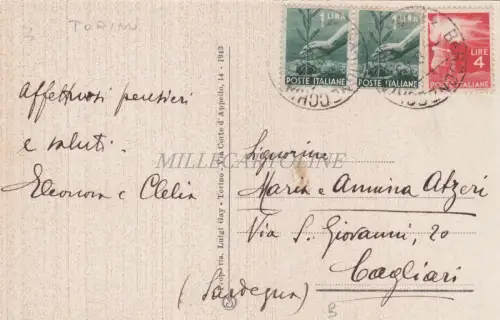 3 TORINO
1 LIRA
POSTE ITALIANE
1 LIRA
POSTE ITALIANE
LIRE 4
POSTE ITALIANE
Affettuosi pensieri
e saluti.
Eleonora e Clelia
Luigi Gay - Torino - Via Corte d'Appello, 14 - 1943
MILLECARTOLINE
Signorine
Maria e Annina Atzeri
Via S. Giovanni, 20
Cagliari
(Sardegna)